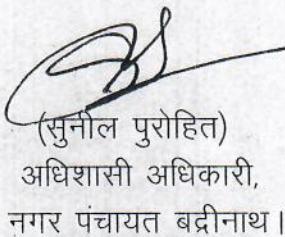 (सुनील पुरोहित)
अधिशासी अधिकारी,
नगर पंचायत बद्रीनाथ।